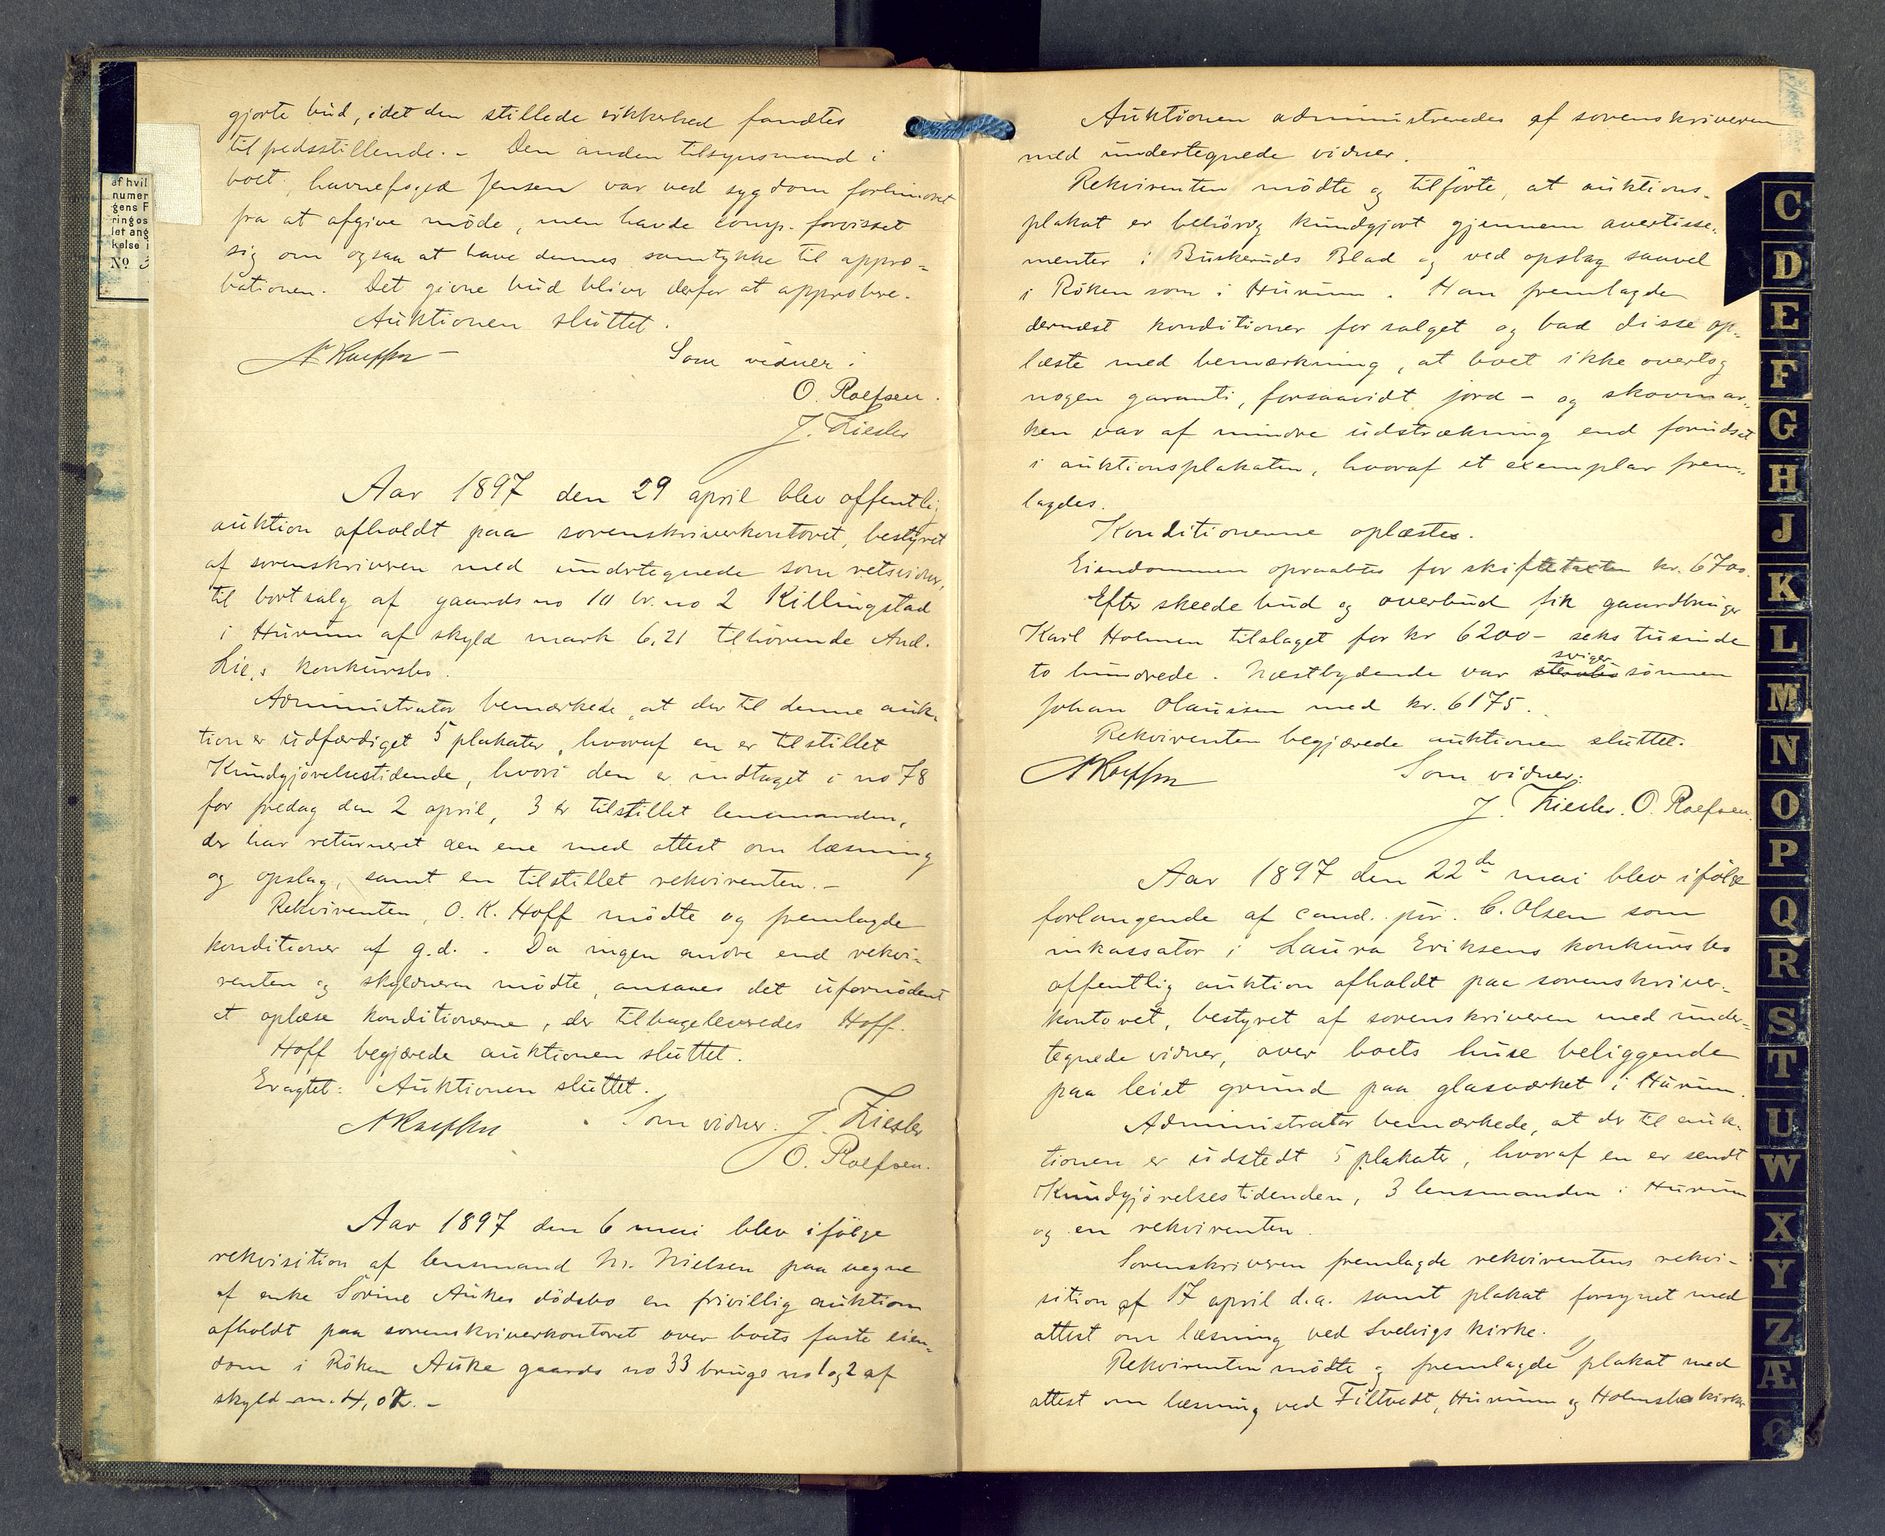 gjorte bud, idet den stillede sikkerhed fandtes
tilfredsstillende. - Den anden tilsynsmand i
boet, havnefoged Jensen var ved sygdom forhindret
fra at afgive møde, men havde comp. forvisset
sig om ogsaa at have dennes samtykke til appro-
bationen. Det givne bud bliver derfor at approbere.
Auktionen sluttet.
Som vidner:
O. Roefsen.
J. Ziesler
Aar 1897 den 29 april blev offentlig
auktion afholdt paa sorenskriverkontoret, bestyret
af sorenskriveren med undertegnede som retsvidner,
til bortsalg af gaards no 10 br. no 2 Killingstad
i Hurum af skyld mark 6,21 tilhørende And.
Lie,s konkursbo.
Administrator bemærkede, at der til denne auk-
tion er udfærdiget 5 plakater, hvoraf en er tilstillet
Kundgjørelsestidende, hvori den er indtaget i no 78
for fredag den 2 april, 3 er tilstillet lensmanden,
der har returneret den ene med attest om læsning
og opslag, samt en tilstillet rekvirenten. -
Rekvirenten, O. K. Hoff mødte og fremlagde
konditioner af g.d. . Da ingen andre end rekvi-
renten og skyldneren mødte, ansaaes det ufornødent
at oplæse konditionerne, der tilbageleveredes Hoff.
Hoff begjærede auktionen sluttet.
Eragtet: Auktionen sluttet.
Som vidner: J. Ziesler
O. Roefsen.
Aar 1897 den 6 mai blev ifølge
rekvisition af lensmand N. Nielsen paa vegne
af enke Sørine Aukes dødsbo en frivillig auktion
afholdt paa sorenskriverkontoret over boets faste eien-
dom i Røken Auke gaards no 33 brugs no 1 og 2 af
skyld m. 4,07. -
Auktionen administreredes af sorenskriveren
med undertegnede vidner.
Rekvirenten mødte og tilførte, at auktions-
plakat er behørig kundgjort gjennem avertisse-
menter i Buskeruds Blad og ved opslag saavel
i Røken som i Hurum. Han fremlagde
dernæst konditioner for salget og bad disse op-
læste med bemærkning, at boet ikke overtog
nogen garanti, forsaavidt jord- og skovmar-
ken var af mindre udstrækning end forudsat
i auktionsplakaten, hvoraf et exemplar frem-
lagdes.
Konditionerne oplæstes.
Eiendommen opraabtes for skiftetaxten kr. 6700.
Efter skeede bud og overbud fik gaardbruger
Karl Holmen tilslaget for kr 6200 - seks tusinde
to hundrede. Næstbydende var sviger
sønnen
Johan Olaussen med kr. 6175.
Rekvirenten begjærede auktionen sluttet.
Som vidner:
J. Ziesler. O. Roefsen.
Aar 1897 den 22de mai blev ifølge
forlangende af cand. jur. C. Olsen som
inkassator i Laura Eriksens konkursbo
offentlig auktion afholdt paa sorenskriver-
kontoret, bestyret af sorenskriveren med under-
tegnede vidner, over boets huse beliggende
paa leiet grund paa glasværket i Hurum.
Administrator bemærkede, at der til auk-
tionen er udstedt 5 plakater, hvoraf en er sendt
Kundgjørelsestidenden, 3 lensmanden i Hurum
og en rekvirenten.
Sorenskriveren fremlagde rekvirentens rekvi-
sition af 17 april d.a. samt plakat forsynet med
attest om læsning ved Svelvigs kirke.
Rekvirenten mødte og fremlagde plakat med
attest om læsning ved Filtvedt, Hurum og Holmsbo kirker
af hvil
numer
gens F
ringos
let ang
kelse i
No
C
D
E
F
G
H
J
K
L
M
N
O
P
Q
R
S
T
U
W
X
Y
Z
Æ
Ø